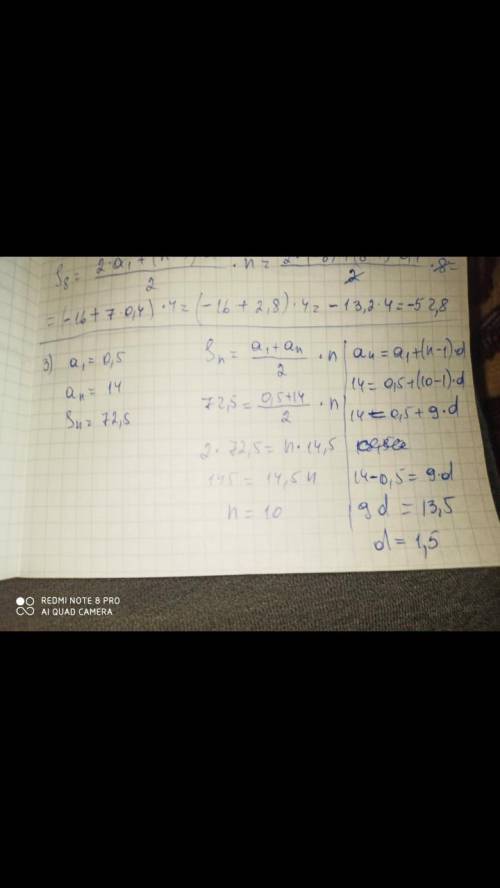 S₈ = 2·a₁+(n / 2 · n = / 2 · 8=
= (-16+7·0,4)·4= (-16+2,8)·4= -13,2·4=-52,8
3) a₁=0,5
aₙ = 14
Sₙ = 72,5
Sₙ = a₁+aₙ / 2 · n
72,5 = 0,5+14 / 2 · n
2·72,5= n·14,5
145 = 14,5 n
n = 10
aₙ = a₁+(n-1)·d
14= 0,5+(10-1)·d
14 = 0,5 + 9·d
14-0,5= 9·d
9d = 13,5
d= 1,5
REDMI NOTE 8 PRO
AI QUAD CAMERA